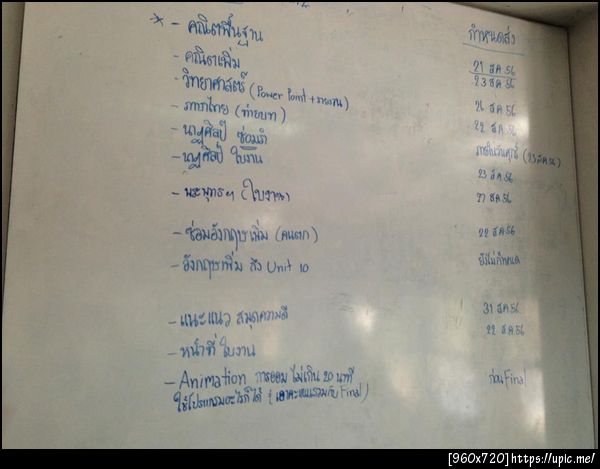 * - คณิตพื้นฐาน
กำหนดส่ง
- คณิตเพิ่ม
21 ธค 56
- วิทยาศาสตร์ (Power Point + รายงาน)
23 ธค 56
- ภาษาไทย (ท่ายบท)
26 ธค 56
- นาฏศิลป์ ซ่อมรำ
22 ธค 56
- นาฏศิลป์ ใบงาน
ภายในวันศุกร์ (23 ธค 56)
23 ธค 56
- พระพุทธฯ (ใบงาน)
27 ธค 56
- ซ่อมอังกฤษเพิ่ม (คนตก)
22 ธค 56
- อังกฤษเพิ่ม ส่ง Unit 10
ยังไม่กำหนด
- แนะแนว สมุดความดี
31 ธค 56
22 ธค 56
- หน้าที่ ใบงาน
- Animation การออม ไม่เกิน 20 นาที
ก่อน Final
ใช้โปรแกรมอะไรก็ได้ (เอาคะแนนรวมกับ Final)
[960x720] https://upic.me/